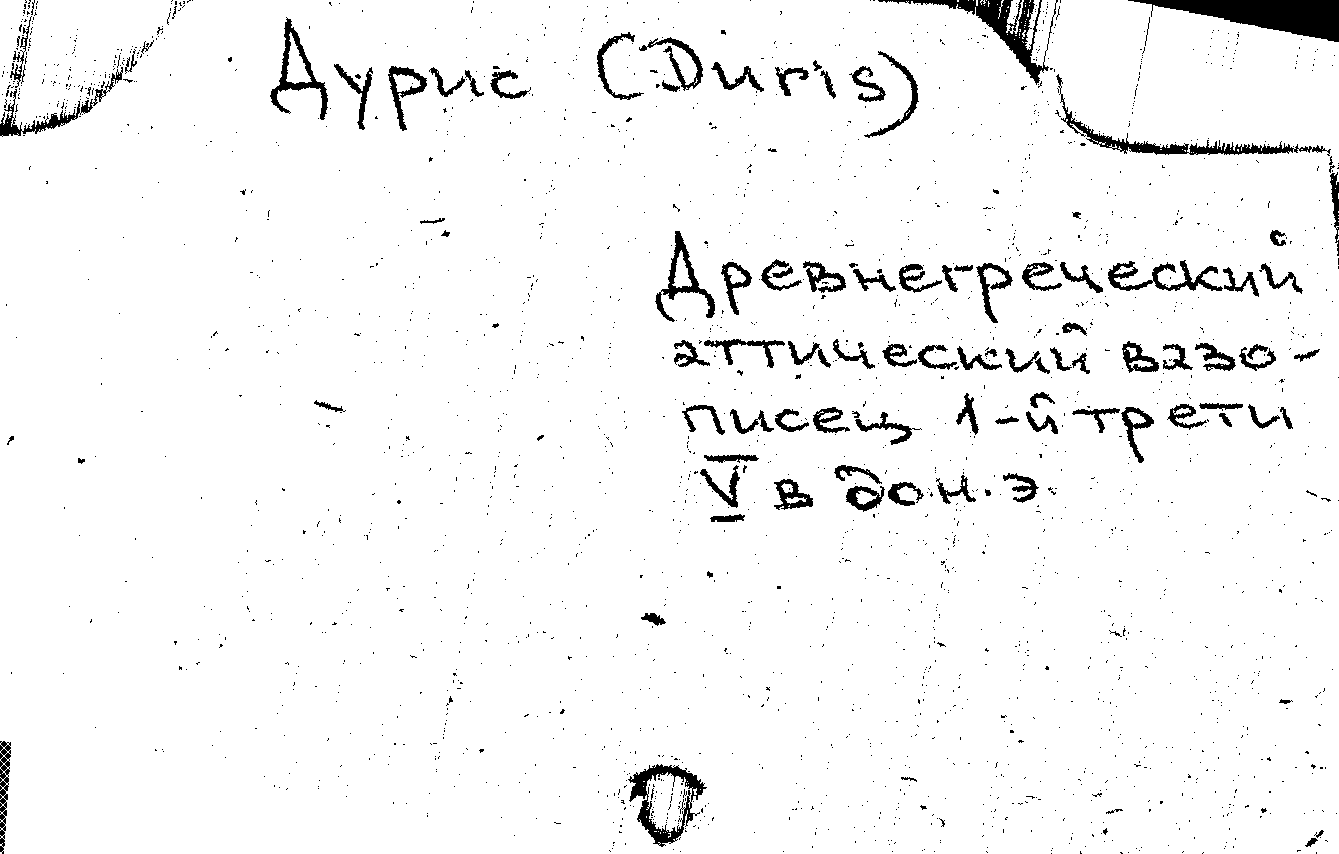 Дурис (Duris)
Древнегреческий
аттический вазо-
писец 1-й трети
V в до н. э.